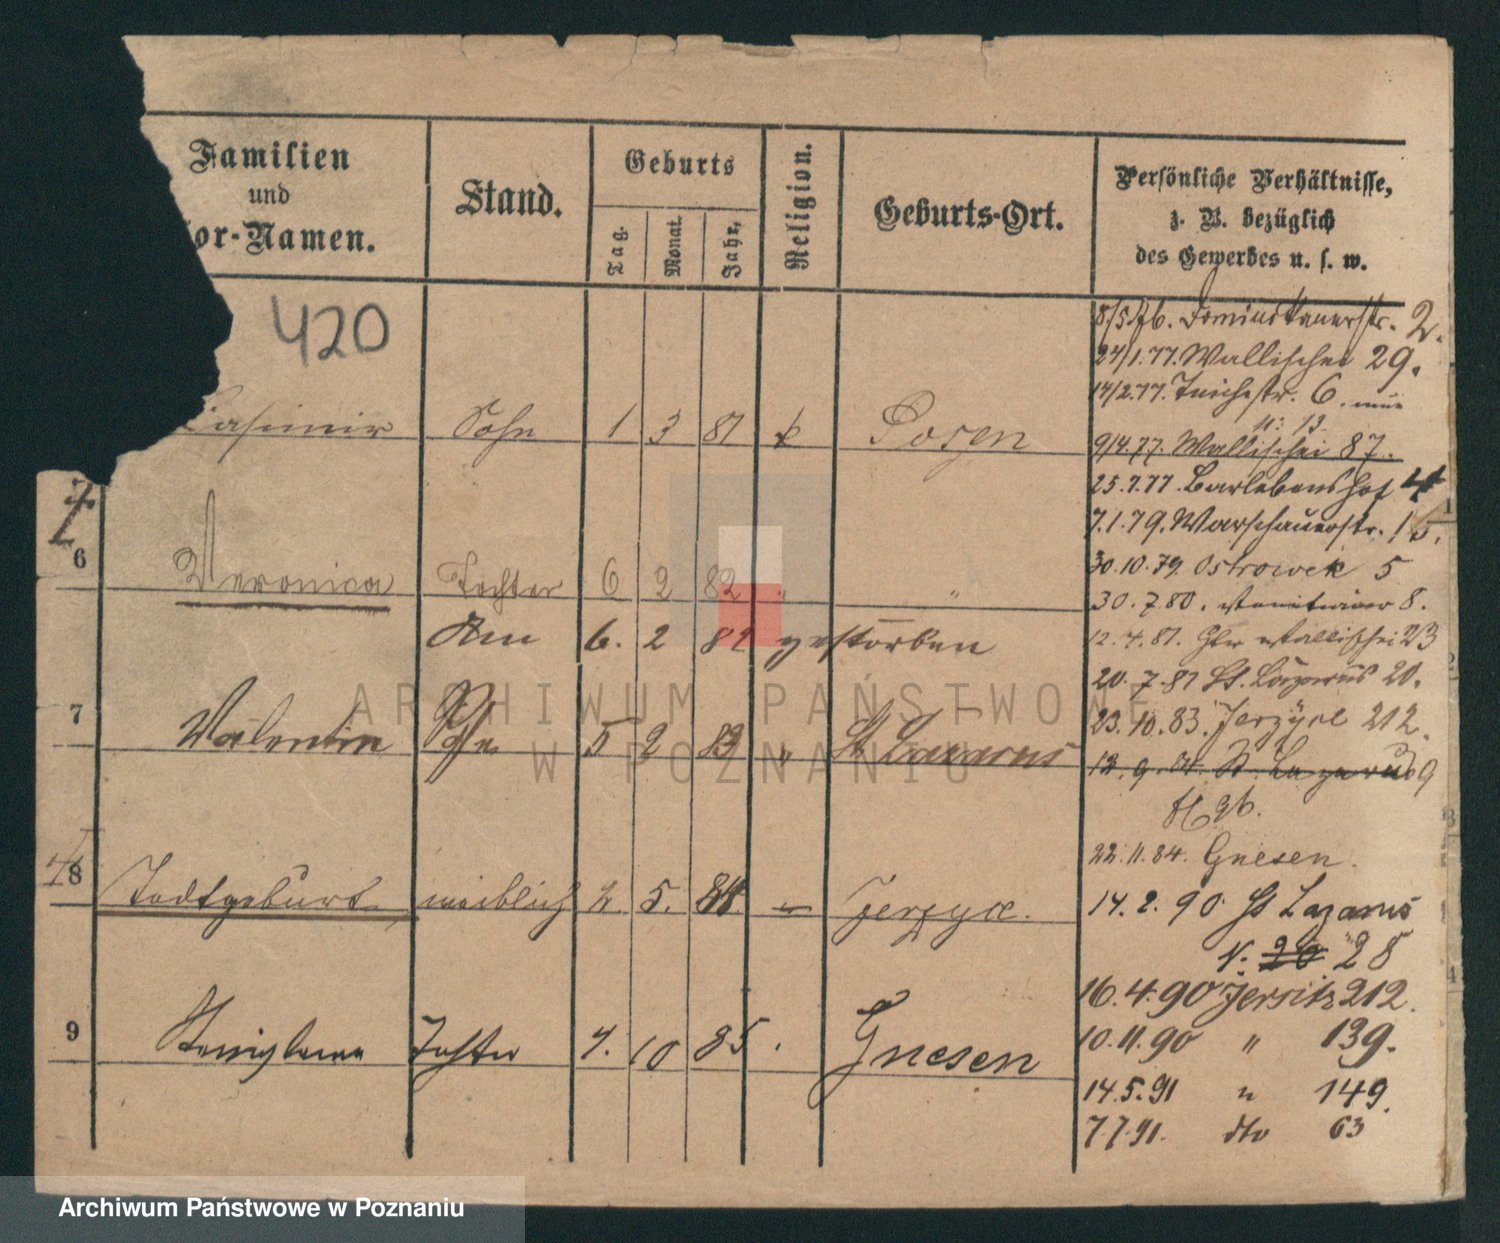 Familien
und
or-Namen.
Stand.
Geburts
Tag.
Monat.
Jahr.
Religion.
Geburts-Ort.
Persönliche Verhältnisse,
z. B. bezüglich
des Gewerbes u. s. w.
420
Casimir Sohn 1 3 81 k Posen
6 Veronica Tochter 6 2 82 " "
Am 6. 2 82 gestorben
7 Valentin Sohn 5 2 83 " St Lazarus
8 Todtgeburt weiblich 2. 5. 84 Jerzyce.
9 Tochter 7. 10 85. Gnesen
8/5.76. Dominikanerstr. 2.
24/1.77. Wallischei 29.
14/2.77. Teichstr. 6.
11: 13
9/4.77. Wallischei 87.
25.7.77. Barlebenshof 4
7.1.79. Warschauerstr. 15.
30.10.79 Ostrowek 5
30.7.80. 8.
12.4.81. Wallischei 23
20.7.81 St. Lazarus 20.
23.10.83. Jerzyce 212.
12.9.84. St. Lazarus 9
22.11.84. Gnesen.
14.2.90 St Lazarus
N. 20 28
16.4.90 Jersitz 212.
10.11.90 " 139.
14.5.91 " 149.
7.7.91. dto 63
ARCHIWUM PAŃSTWOWE
W POZNANIU
Archiwum Państwowe w Poznaniu